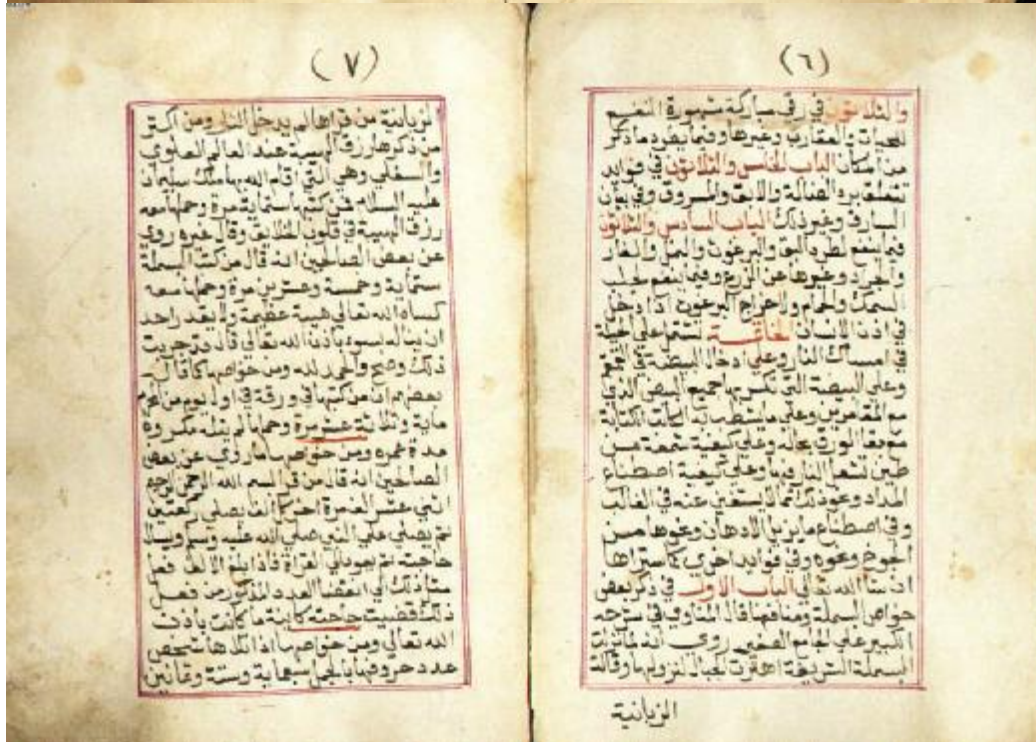 (٦)
والثلاثون في رقى مباركة مشهورة النفع
للحيات والعقارب وغيرها وفيما يطرد ما ذكر
من اماكن الباب الخامس والثلاثون في فوايد
تتعلق برد الضالة والابق والمسروق وفي بيان
السارق وغير ذلك الباب السادس والثلاثون
فيما ينفع لطرد البق والبرغوث والنمل والفار
والجراد وغيرها عن الزرع وفيما ينفع لجلب
السمك والحمام ولاخراج البرغوث اذا دخل
في اذن الانسان الخاتمة تشتمل على الحيلة
في امساك النار وعلى ادخال البيضة في القمقم
وعلى البيضة التي تكسر بها جميع البيض الذي
مع المقامرين وعلى ما يشطب به الكتابة
مع بقا الورق بحاله وعلى كيفية شمعة من
طين تشعل النار فيها وعلى كيفية اصطناع
المداد ونحو ذلك مما لا يستغنى عنه في الغالب
وفي اصطناع ما يزيل الادهان ونحوها من
الجوخ ونحوه وفي فوايد اخرى كما ستراها
ان شا الله تعالى الباب الاول في ذكر بعض
خواص البسملة ومنافعها قال المناوي في شرحه
الكبير على الجامع الصغير روي انه لما نزلت
البسملة الشريفة اهتزت الجبال لنزولها وقالت
الزبانية
(٧)
الزبانية من قراها لم يدخل النار ومن اكثر
من ذكرها رزق الهيبة عند العالم العلوي
والسفلي وهي التي اقام الله بها ملك سليمان
عليه السلام فمن كتبها ستماية مرة وحملها معه
رزق الهيبة في قلوب الخلايق وقال غيره روي
عن بعض الصالحين انه قال من كتب البسملة
ستماية وخمسة وعشرين مرة وحملها معه
كساه الله تعالى هيبة عظيمة ولا يقدر احد
ان يناله بسوء باذن الله تعالى قال وقد جربت
ذلك وصح والحمد لله ومن خواصها كما قال
بعضهم ان من كتبها في ورقة في اول يوم من المحرم
ماية وثلاثة عشر مرة وحملها لم ينله مكروه
مدة عمره ومن خواصها ما روي عن بعض
الصالحين انه قال من قرا بسم الله الرحمن الرحيم
اثني عشر الف مرة اخر كل الف يصلي ركعتين
ثم يصلي على النبي صلى الله عليه وسلم ويسال
حاجته ثم يعود الى القراة فاذا بلغ الالف فعل
مثل ذلك الى انقضا العدد المذكور من فعل
ذلك قضيت حاجته كاينة ما كانت باذن
الله تعالى ومن خواصها اذا تلاها شخص
عدد حروفها بالجمل سبعماية وستة وثمانين